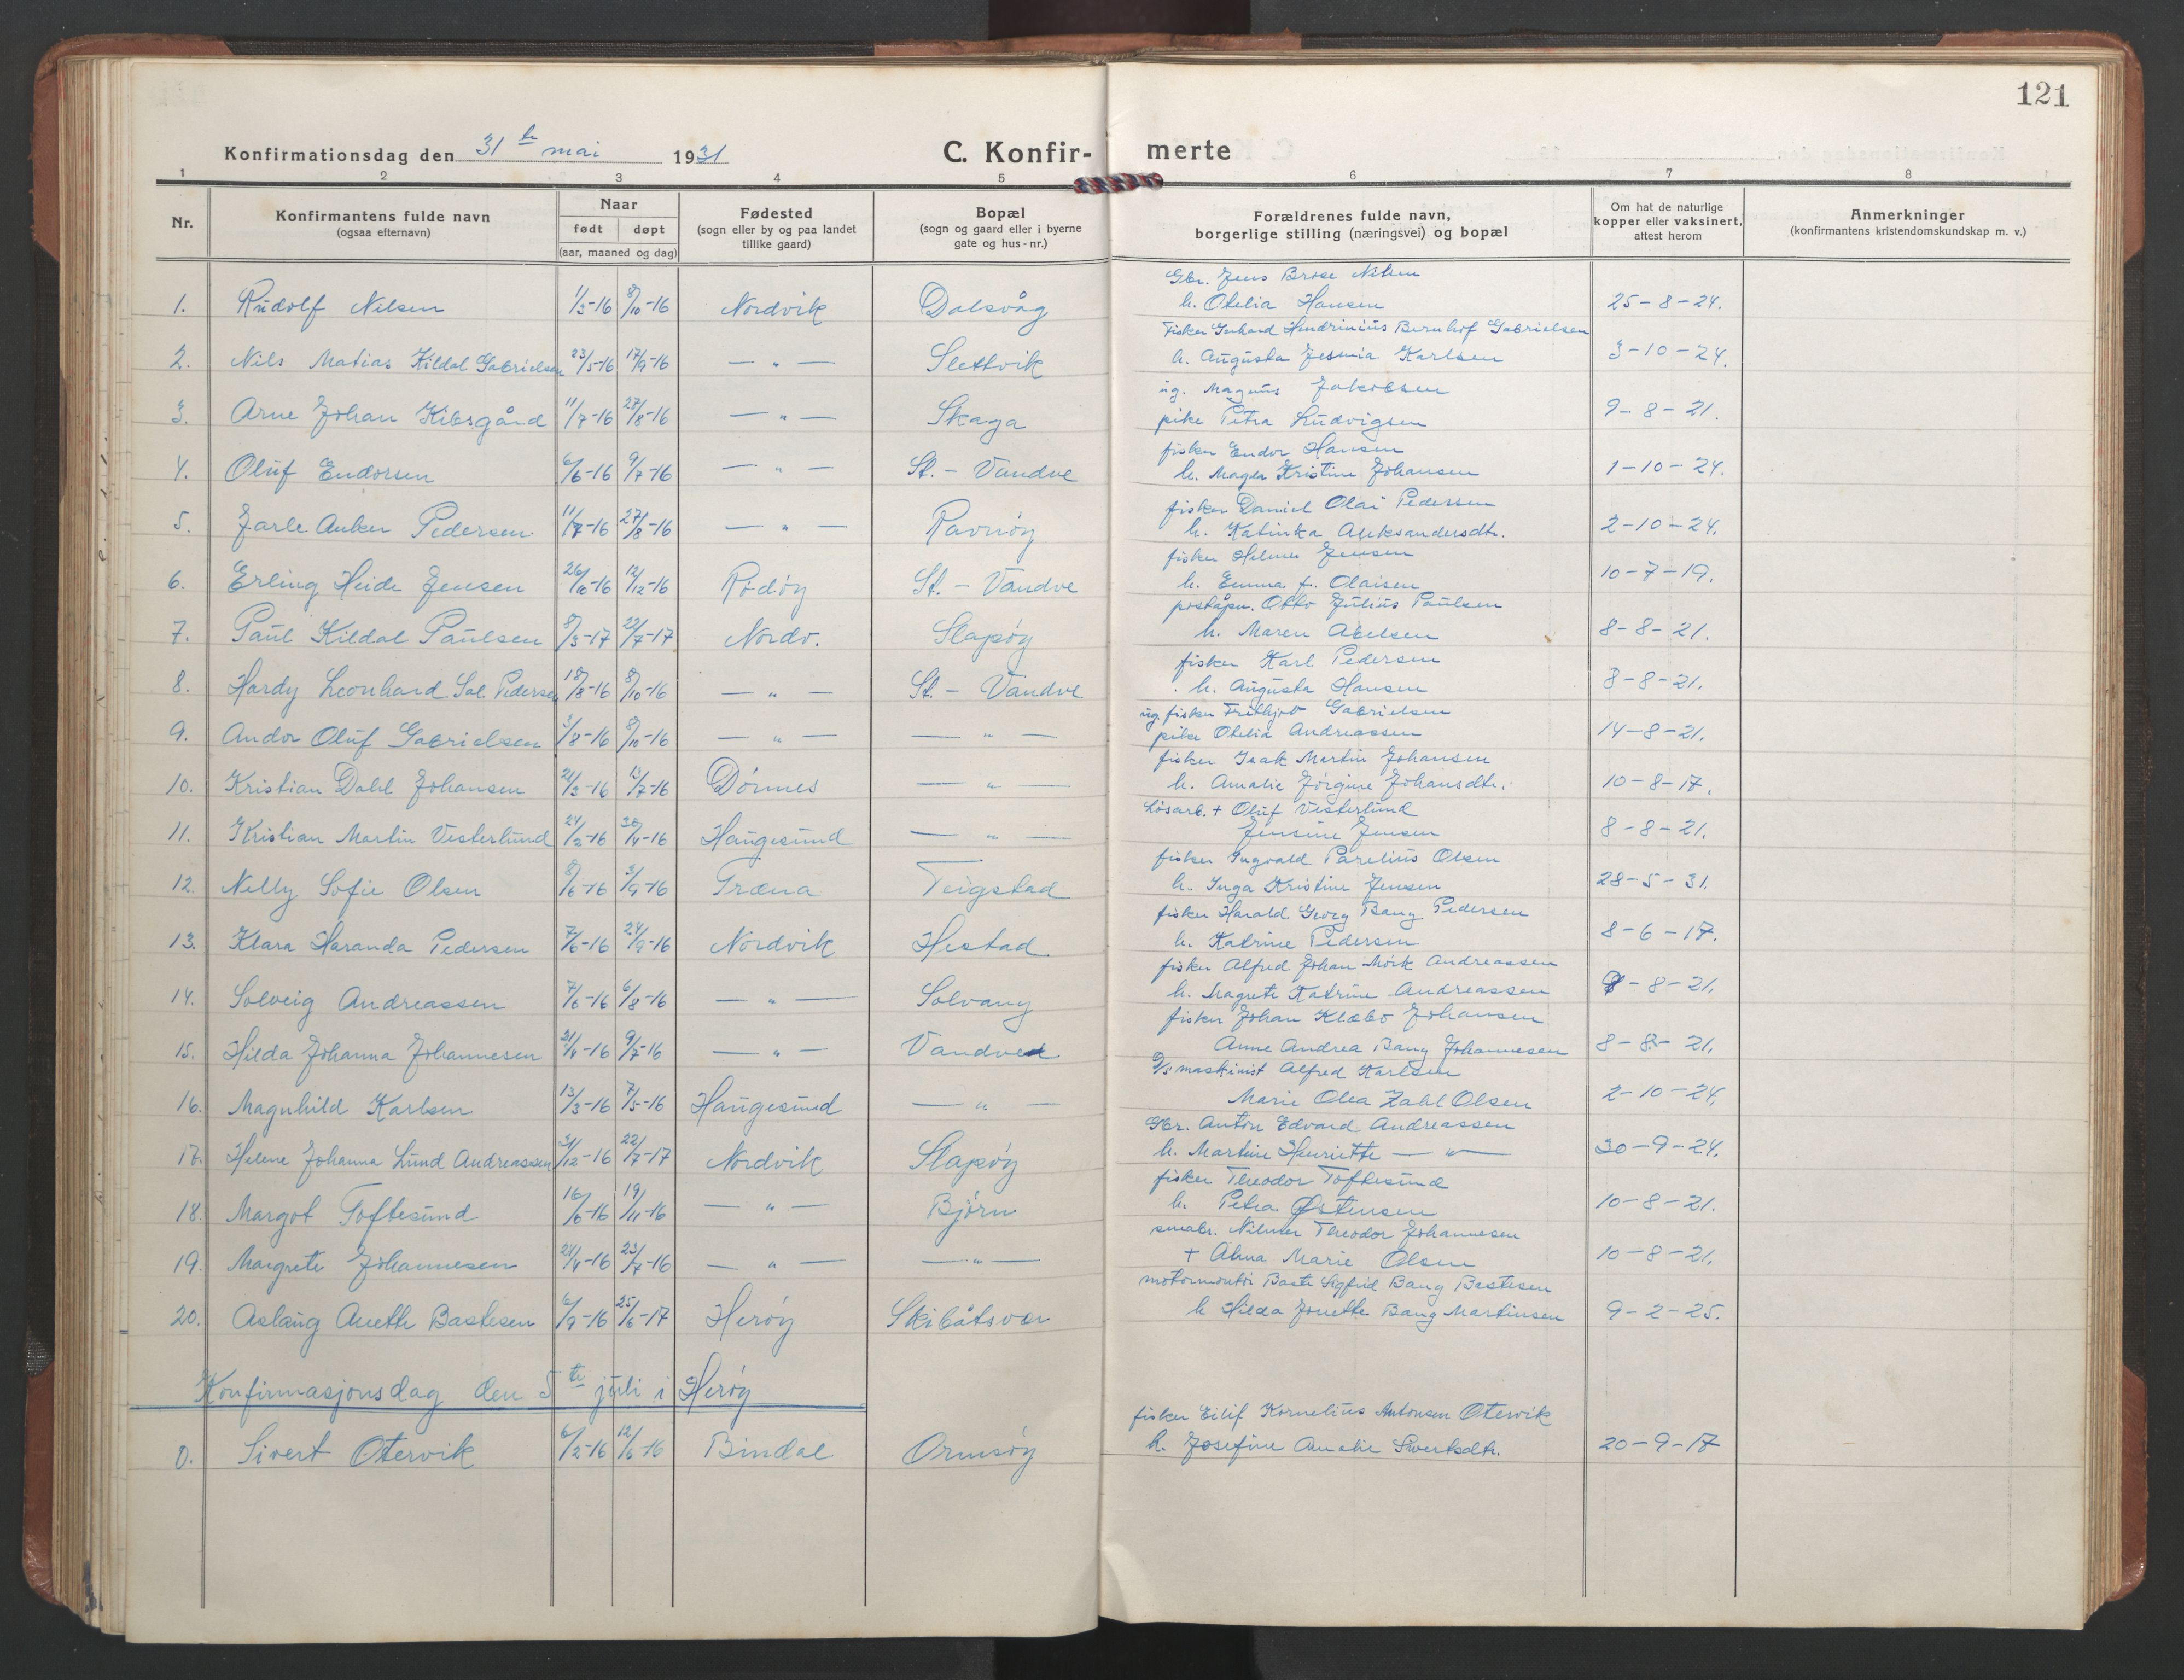 121
Konfirmationsdag den 31te mai 1931 C. Konfir- merte
1 2 3 4 5 6 7 8
Nr. Konfirmantens fulde navn (ogsaa efternavn) Naar født døpt (aar, maaned og dag) Fødested (sogn eller by og paa landet tillike gaard) Bopæl (sogn og gaard eller i byerne gate og hus-nr.) Forældrenes fulde navn, borgerlige stilling (næringsvei) og bopæl Om hat de naturlige kopper eller vaksinert, attest herom Anmerkninger (konfirmantens kristendomskundskap m. v.)
Gbr. Jens Brose Nilsen
1. Rudolf Nilsen 1/5-16 8/10-16 Nordvik Dalsvåg h. Otelia Hansen 25-8-24.
Fisker Gerhard Hendrinius Bernhof Gabrielsen
2. Nils Matias Kildal Gabrielsen 23/5-16 17/9-16 — " — Slettvik h. Augusta Jesmia Karlsen 3-10-24.
ug. Magnus Jakobsen
3. Arne Johan Kibsgård 11/7-16 27/8-16 — " — Skaga pike Petra Ludvigsen 9-8-21.
fisker Endor Hansen
4. Oluf Endorsen 6/6-16 9/7-16 — " — St. - Vandve h. Magda Kristine Johansen 1-10-24.
fisker Daniel Olai Pedersen
5. Jarle Anker Pedersen 11/7-16 27/8-16 — " — Ravnøy h. Katinka Aleksandersdtr. 2-10-24.
fisker Helmer Jensen
6. Erling Heide Jensen 26/10-16 12/12-16 Rødøy St. - Vandve h. Emma f. Olaisen 10-7-19.
poståpn. Otto Julius Paulsen
7. Paul Kildal Paulsen 8/3-17 22/7-17 Nordv. Slapøy h. Maren Abelsen 8-8-21.
fisker Karl Pedersen
8. Hardy Leonhard Sol. Pedersen 18/8-16 8/10-16 — " — St. - Vandve h. Augusta Hansen 8-8-21.
ug. fisker Frithjov Gabrielsen
9. Andor Oluf Gabrielsen 3/8-16 8/10-16 — " — — " — pike Otelia Andreassen 14-8-21.
fisker Isak Martin Johansen
10. Kristian Dahl Johansen 21/3-16 13/7-16 Dønnes — " — h. Amalie Jørgine Johansdtr. 10-8-17.
Løsarb. + Oluf Vesterlund
11. Kristian Martin Vesterlund 24/2-16 30/4-16 Haugesund — " — Jensine Jensen 8-8-21.
fisker Ingvald Parelius Olsen
12. Nelly Sofie Olsen 8/6-16 3/9-16 Træna Teigstad h. Inga Kristine Jensen 28-5-31.
fisker Harald Georg Bang Pedersen
13. Klara Haranda Pedersen 7/6-16 24/9-16 Nordvik Hestad h. Katrine Pedersen 8-6-17.
fisker Alfred Johan Mørk Andreassen
14. Solveig Andreassen 7/6-16 6/8-16 — " — Solvang h. Magrete Katrine Andreassen 9-8-21.
fisker Johan Klæbo Johansen
15. Hilda Johanna Johannesen 21/4-16 9/7-16 — " — Vandve Anne Andrea Bang Johannesen 8-8-21.
D/s maskinist Alfred Karlsen
16. Magnhild Karlsen 13/3-16 7/5-16 Haugesund — " — Marie Olea Zahl Olsen 2-10-24.
Gbr. Anton Edvard Andreassen
17. Helene Johanna Lund Andreassen 31/12-16 22/7-17 Nordvik Slapøy h. Martine Henriette — " — 30-9-24.
fisker Theodor Toftesund
18. Margot Toftesund 16/6-16 19/11-16 — " — Bjørn h. Petra Østensen 10-8-21.
småbr. Nilmer Theodor Johannesen
19. Margrete Johannesen 21/4-16 23/7-16 — " — — " — + Alma Marie Olsen 10-8-21.
motormontør Baste Sigfrid Bang Bastesen
20. Aslaug Anette Bastesen 6/9-16 25/6-17 Herøy Skibåtsvær h Hilda Jonette Bang Martinsen 9-2-25.
Konfirmasjonsdag den 5te juli i Herøy
fisker Eilif Kornelius Antonsen Otervik
0. Sivert Otervik 6/2-16 12/6-16 Bindal Ormsøy h. Josefine Amalie Sivertsdtr. 20-9-17